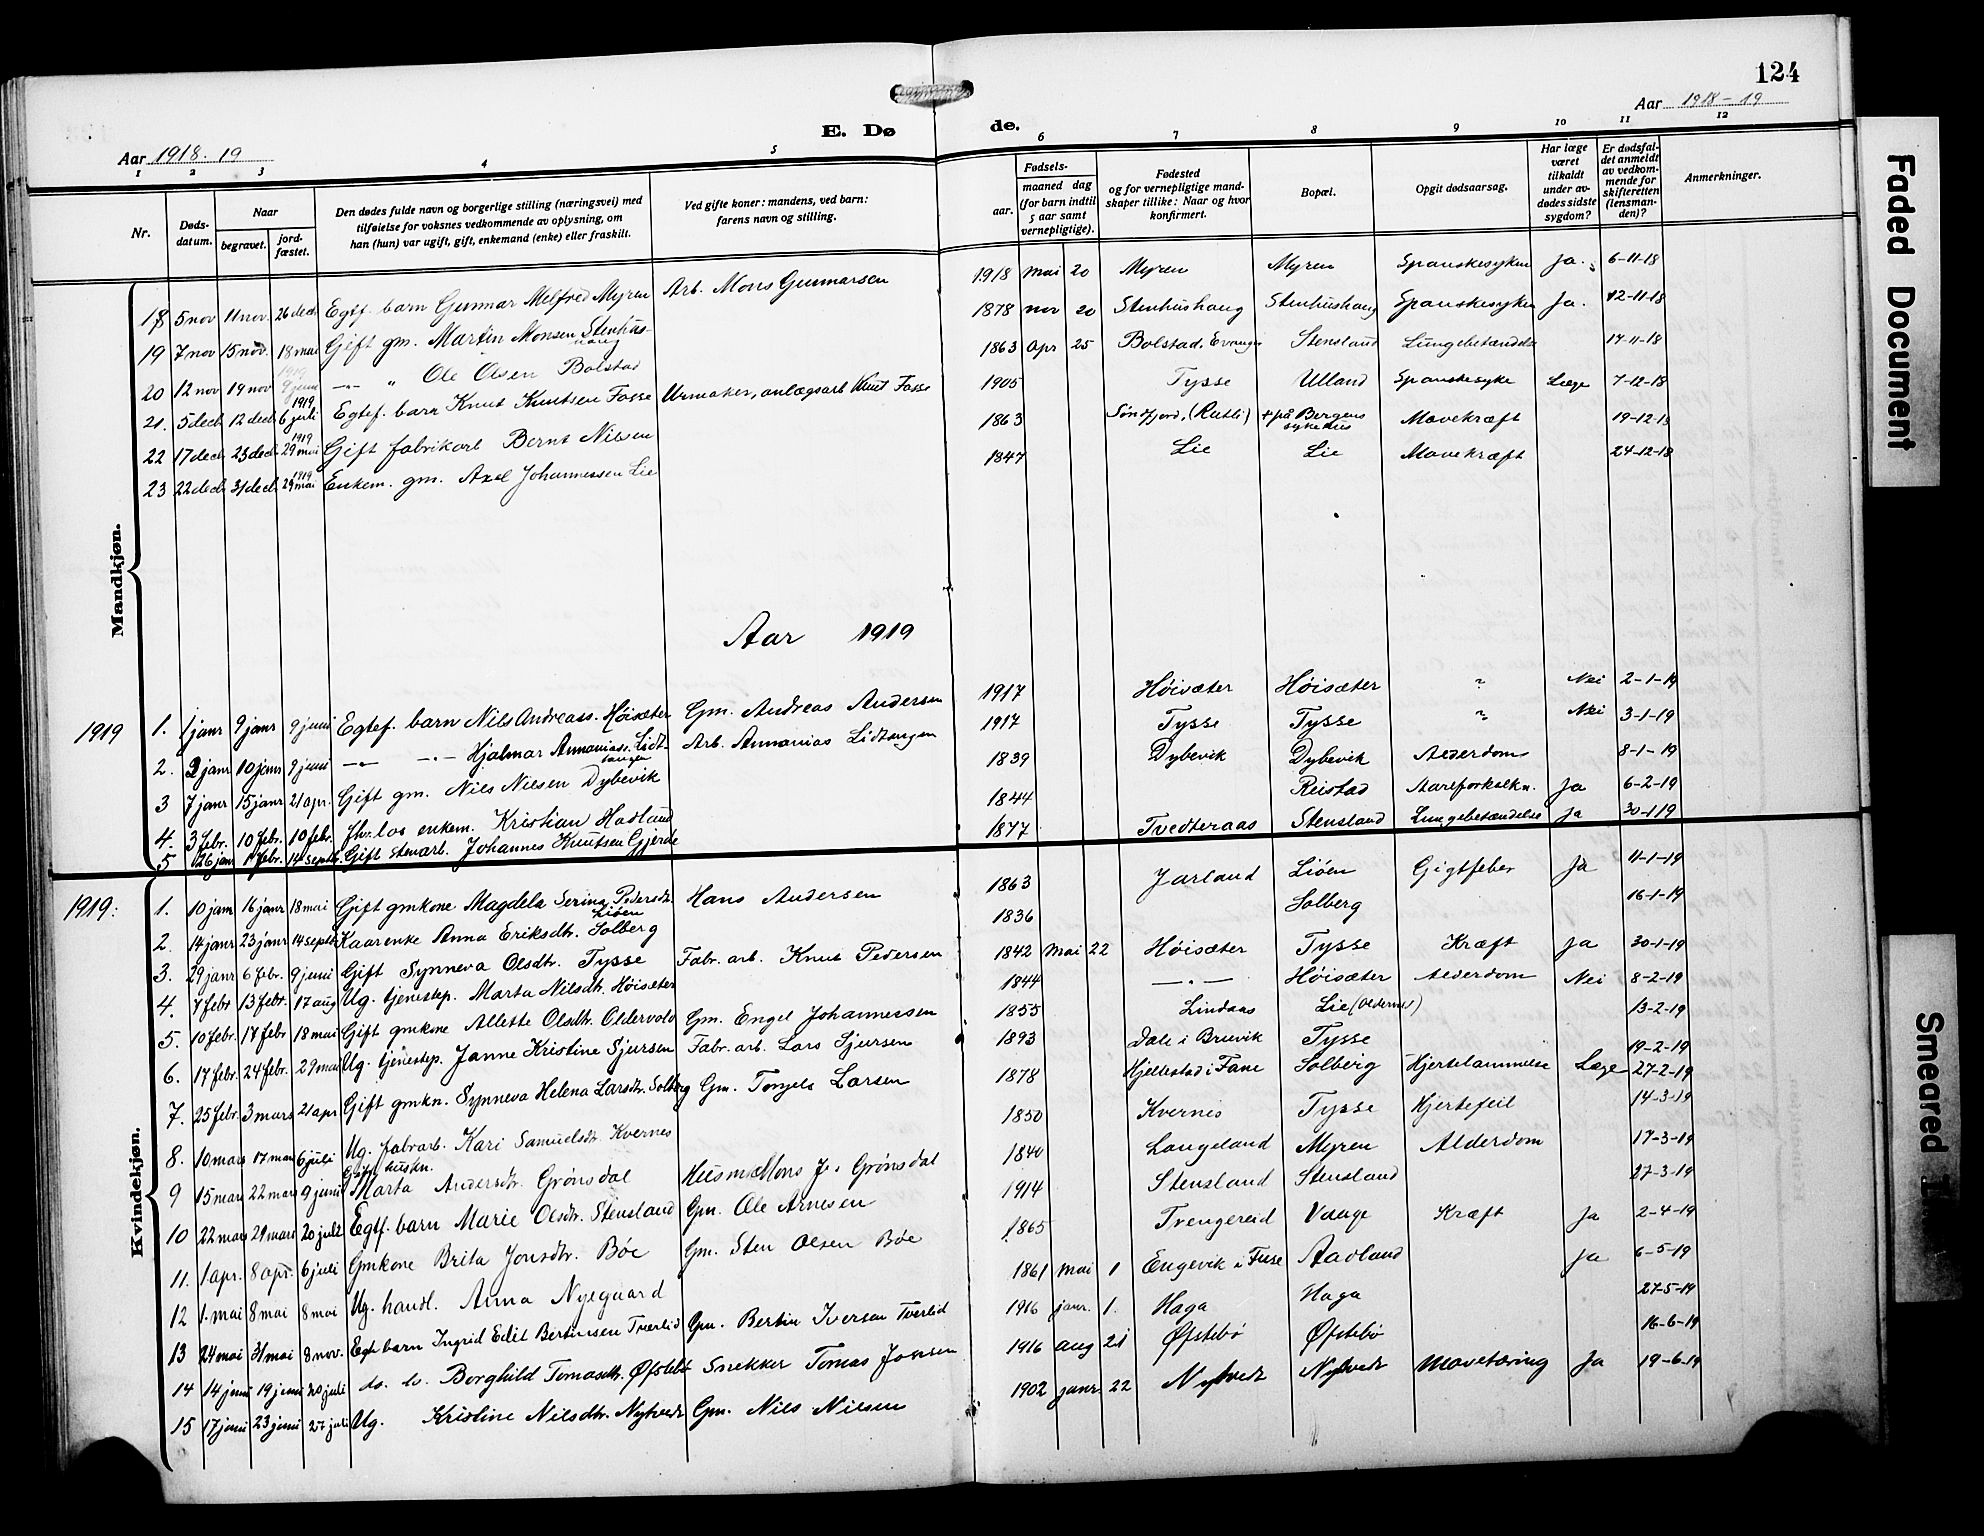 124
Aar 1918-19
E. Døde.
Aar 1918-19
1 2 3 4 5 6 7 8 9 10 11 12
Nr. Døds-datum. Naar begravet. jord-fæstet. Den dødes fulde navn og borgerlige stilling (næringsvei) med tilføielse for voksnes vedkommende av oplysning, om han (hun) var ugift, gift, enkemand (enke) eller fraskilt. Ved gifte koner: mandens, ved barn: farens navn og stilling. Fødsels- aar. maaned dag (for barn indtil 5 aar samt vernepligtige). Fødested og for vernepligtige mandskaper tillike: Naar og hvor konfirmert. Bopæl. Opgit dødsaarsag. Har læge været tilkaldt under avdødes sidste sygdom? Er dødsfaldet anmeldt av vedkommende for skifteretten (lensmanden)? Anmerkninger.
Mandkjøn.
18 5 nov 11 nov. 26 dec Egtf. barn Gunnar Melfred Myren Arb. Mons Gunnarsen 1918 mai 20 Myren Myren Spanskesyken Ja. 6-11-18
19 7 nov 15 nov. 18 mai Gift gm. Martin Monsen Stenhushaug 1878 nov 20 Stenhushaug Stenhushaug Spanskesyken Ja. 12-11-18
20 12 nov 19 nov 1919 9 juni —"— " Ole Olsen Bolstad 1863 apr 25 Bolstad, Evanger Stensland Lungebetændelse 14-11-18
21. 5 dec 12 dec 1919 6 juli Egtef. barn Knut Knutsen Fosse Urmaker, anlægsarb Knut Fosse 1905 Tysse Ulland Spanskesyke Læge 7-12-18
22 17 dec 23 dec 1919 29 mai Gift fabrikarb Bernt Nilsen 1863 Søndfjord, + på Bergens sykehus Mavekræft 19-12-18
23 22 dec 31 dec 1919 29 mai Enkem. gm. Axel Johannessen Lie 1847 Lie Lie Mavekræft 24-12-18
Aar 1919
1919 1. 1 janr 9 janr 9 juni Egtef. barn Nils Andreass. Høisæter Gm. Andreas Andersen 1917 Høisæter Høisæter ? Nei 2-1-19
2. 2 janr 10 janr 9 juni —"— —"— Hjalmar Annaniass. Lidtangen Arb. Annanias Lidtangen 1917 Tysse Tysse ? Nei 3-1-19
3 7 janr 15 janr 21 apr. Gift gm. Nils Nilsen Dybevik 1839 Dybevik Dybevik Alderdom 8-1-19
4. 3 febr. 10 febr. 10 febr. fhv. los enkem. Kristian Hadland 1844 Reistad Aareforkalkn. Ja 6-2-19
5 26 jan 1 febr. 14 septb. Gift stenarb. Johannes Knutsen Gjerde 1877 Tvedteraas Stensland Lungebetændelse Ja 30-1-19
Kvindekjøn.
1919: 1. 10 janr 16 janr 18 mai Gift gmkone Magdela Serina Pedersdtr. Liøen Hans Andersen 1863 Jarland Liøen Gigtfeber Ja 11-1-19
2. 14 janr 23 janr 14 septb Kaarenke Anna Eriksdtr. Solberg 1836 Solberg 16-1-19
3. 29 janr 6 febr. 9 juni Gift Synneva Olsdtr. Tysse Fabr. arb. Knut Pedersen 1842 Mai 22 Høisæter Tysse Kræft Ja 30-1-19
4. 7 febr 13 febr. 17 aug Ug. tjenestep. Marta Nilsdtr. Høisæter 1844 —"— Høisæter Alderdom Nei 8-2-19
5. 10 febr. 17 febr 18 mai Gift gmkone Allette Olsdtr. Oldervold Gm. Engel Johannessen 1855 Lindaas Lie 13-2-19
6. 17 febr. 24 febr. 29 mai Ug. tjenestep. Janne Kristine Sjursen Fabr. arb. Lars Sjursen 1893 Dale i Bruvik Tysse 19-2-19
7. 25 febr. 3 mars 21 apr Gift gmkn. Synneva Helena Larsdtr. Solberg Gm. Torgels Larsen 1878 Hjellestad i Fane Solberg Hjertelammelse Læge 27-2-19
8. 10 mars 17 mars 6 juli Ug. fabrarb. Kari Samuelsdtr. Kvernes 1850 Kvernes Tysse Hjertefeil 14-3-19
9 15 mars 22 mars 9 juni Gift huskn. Marta Andersdtr. Grønsdal Husm. Mons J. Grønsdal 1840 Langeland Myren Alderdom 17-3-19
10 22 mars 29 mars 20 juli Egtf. barn Marie Olsdtr. Stensland Gm. Ole Arnesen 1914 Stensland Stensland 27-3-19
11. 1 apr. 8 apr. 6 juli Gmkone Brita Jonsdtr. Bøe Gm. Sten Olsen Bøe 1865 Trengereid Vaage Kræft Ja 2-4-19
12 1. mai 8 mai 8 mai Ug. handl. Anna Nyegaard 1861 mai 1 Engevik i Fuse Aadland Ja 6-5-19
13 24 mai 31 mai 8 nov. Egte barn Ingrid Edit Bertinsen Tverlid Gm. Bertin Iversen Tverlid 1916 janr. 1. Haga Haga 27-5-19
14 14 juni 19 juni 20 juli do. b. Borghild Tomasdtr. Øfstebø Snekker Tomas Jonsen 1916 aug 21 Øfstebø Øfstebø 16-6-19
15 17 juni 23 juni 27 juli Ug. Kristine Nilsdtr. Nytvedt Gm. Nils Nilsen 1902 janr. 22 Nytvedt Nytvedt Mavetæring Ja 19-6-19
Faded Document
Smeared